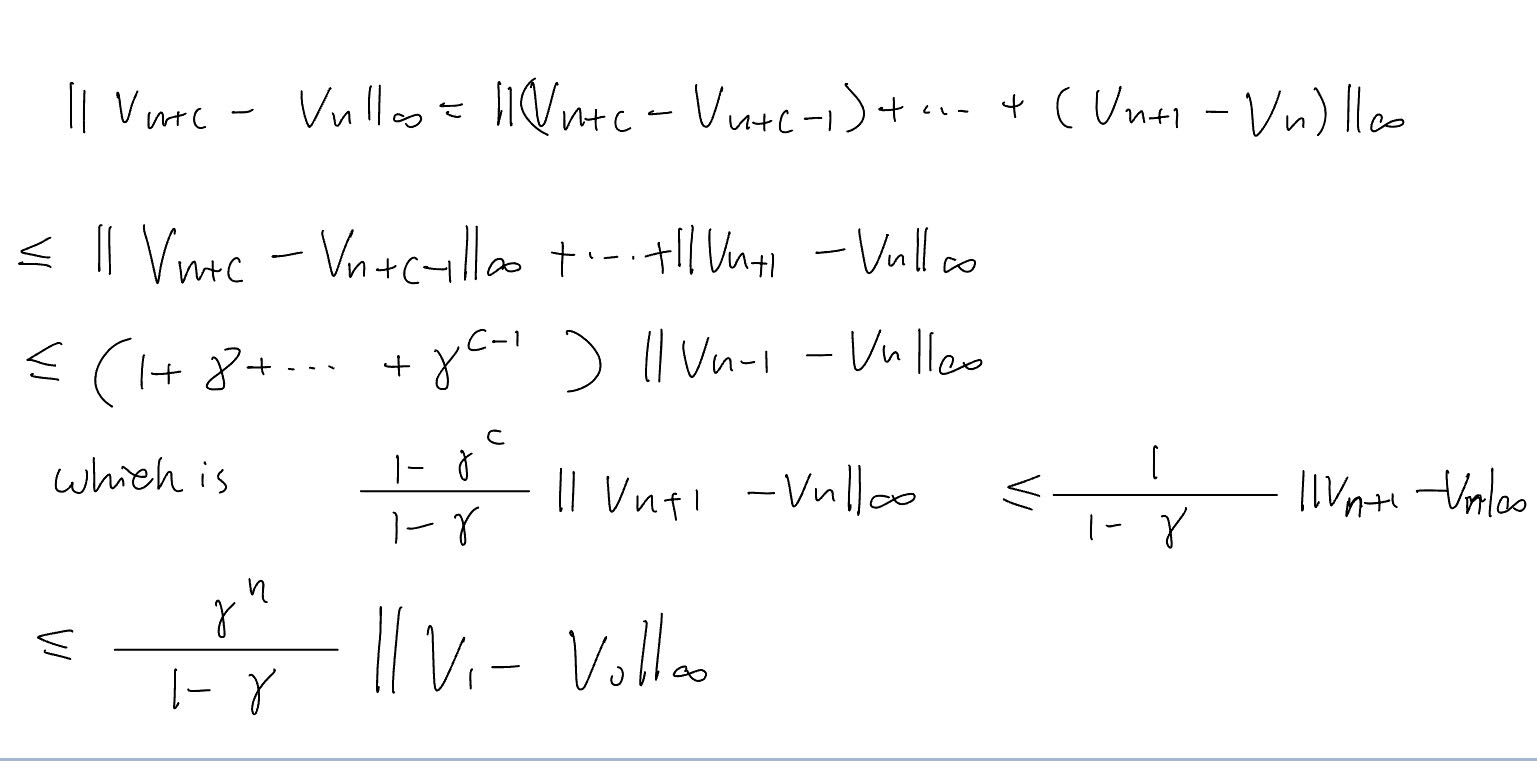 || V_{n+c} - V_n ||_∞ = || (V_{n+c} - V_{n+c-1}) + ... + (V_{n+1} - V_n) ||_∞
≤ || V_{n+c} - V_{n+c-1} ||_∞ + ... + || V_{n+1} - V_n ||_∞
≤ (1 + γ + ... + γ^{c-1}) || V_{n-1} - V_n ||_∞
which is \frac{1-γ^c}{1-γ} || V_{n+1} - V_n ||_∞ ≤ \frac{1}{1-γ} || V_{n+1} - V_n |_∞
≤ \frac{γ^n}{1-γ} || V_1 - V_0 ||_∞